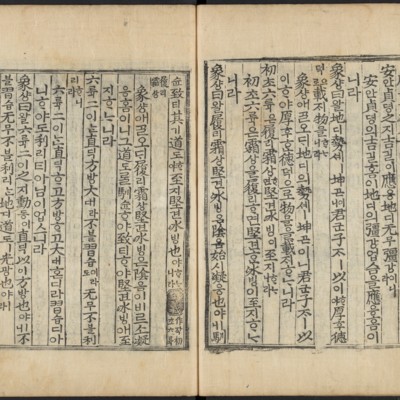 安안貞뎡之지吉길이應응地디无무疆강이니라
安안貞뎡의吉길홈이地디의疆강업슴을應응홈이
니라
象샹曰왈地디勢셰ㅣ坤곤이니君군子ᄌᆞㅣ以이厚후德
덕으로載ᄌᆡ物믈ᄒᆞᄂᆞ니라
象샹애ᄀᆞᆯ오ᄃᆡ地디의勢셰ㅣ坤곤이니君군子ᄌᆞㅣ以
이ᄒᆞ야厚후ᄒᆞᆫ德덕으로物믈을載ᄌᆡᄒᆞᄂᆞ니라
初초六륙은履리霜상ᄒᆞ면堅견冰빙이至지ᄒᆞᄂᆞ니라
初초六륙은霜상을履리ᄒᆞ면堅견ᄒᆞᆫ冰빙이至지ᄒᆞᄂᆞ
니라
象샹曰왈履리霜상堅견冰빙은陰음始시凝응也야ㅣ니馴
슌致티其기道도ᄒᆞ야至지堅견冰빙也야ᄒᆞᄂᆞ니라
象샹애ᄀᆞᆯ오ᄃᆡ履리霜상堅견冰빙은陰음이비르소凝
응홈이니그道도를馴슌ᄒᆞ야致티ᄒᆞ야堅견冰빙애至
지ᄒᆞᄂᆞ니라
六륙二이ᄂᆞᆫ直딕方방大대라不블習습이라도无무不블利
리ᄒᆞ니라
六륙二이ᄂᆞᆫ直딕ᄒᆞ고方방ᄒᆞ고大대ᄒᆞᆫ디라習습디아
니ᄒᆞ야도利리티아님이업스니라
象샹曰왈六륙二이之지動동이直딕以이方방也야ㅣ니不
블習습无무不블利리ᄂᆞᆫ地디道도ㅣ光광也야ㅣ라